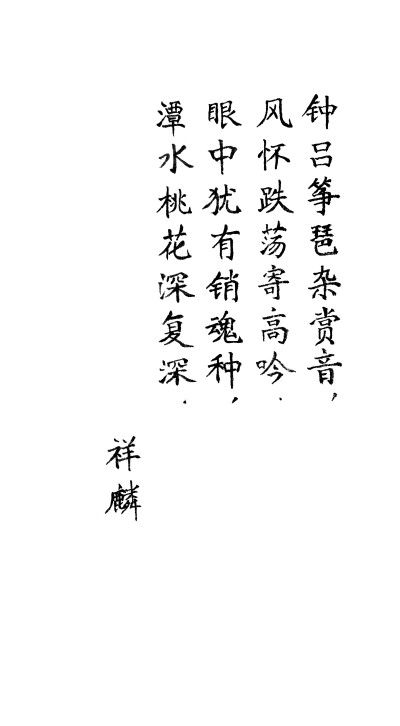 钟吕筝琶杂赏音，
风怀跌荡寄高吟.
眼中犹有销魂种，
潭水桃花深复深.
祥麟